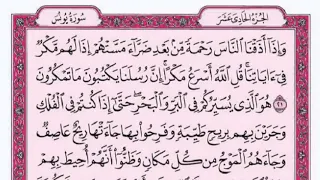 الجزء الحادي عشر
سورة يونس
وَإِذَآ أَذَقْنَا ٱلنَّاسَ رَحْمَةً مِّنۢ بَعْدِ ضَرَّآءَ مَسَّتْهُمْ إِذَا لَهُم مَّكْرٌ
فِىٓ ءَايَاتِنَا ۚ قُلِ ٱللَّهُ أَسْرَعُ مَكْرًا ۚ إِنَّ رُسُلَنَا يَكْتُبُونَ مَا تَمْكُرُونَ
٢١ هُوَ ٱلَّذِى يُسَيِّرُكُمْ فِى ٱلْبَرِّ وَٱلْبَحْرِ ۖ حَتَّىٰٓ إِذَا كُنتُمْ فِى ٱلْفُلْكِ
وَجَرَيْنَ بِهِم بِرِيحٍ طَيِّبَةٍ وَفَرِحُوا۟ بِهَا جَآءَتْهَا رِيحٌ عَاصِفٌ
وَجَآءَهُمُ ٱلْمَوْجُ مِن كُلِّ مَكَانٍ وَظَنُّوٓا۟ أَنَّهُمْ أُحِيطَ بِهِمْ